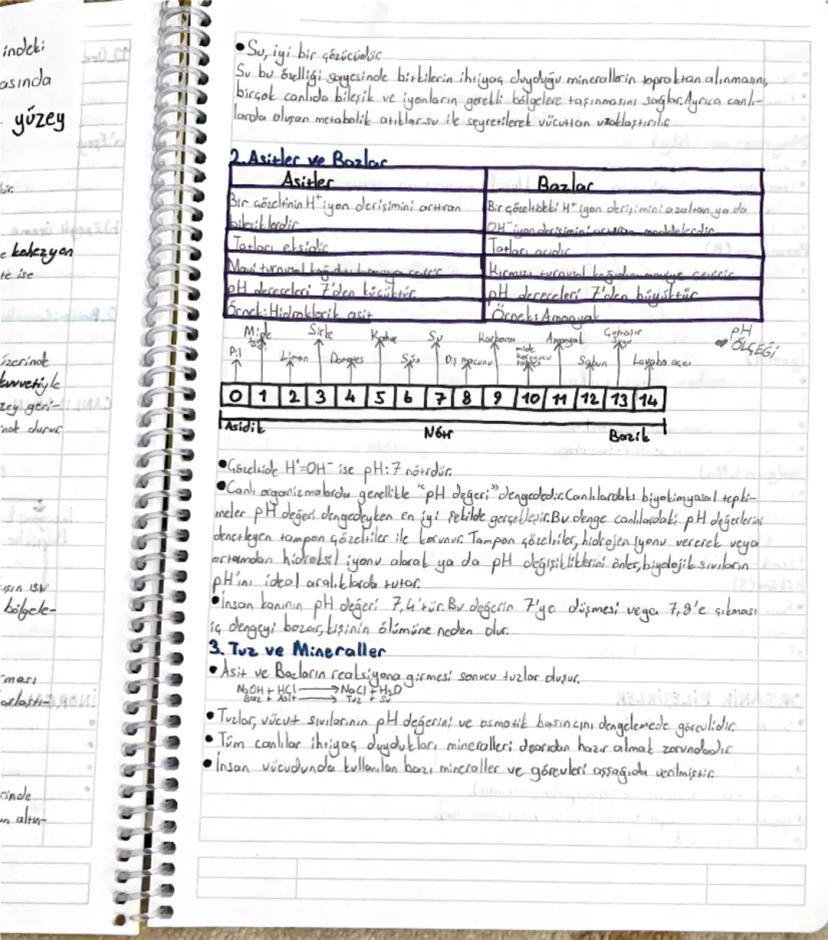 indeki
asında
yüzey
e kohezyon
te ise
üzerinde
kuvvetiyle
zey geri-
bölgele-
• Su, iyi bir çözücüdür
Su bu özelliği sayesinde bitkilerin ihtiyaç duyduğu minerallerin topraktan alınmasını,
birçok canlıda bileşik ve iyonların gerekli bölgelere taşınmasını sağlar. Ayrıca canlı-
larda oluşan metabolik atıklar su ile seyretilerek vücuttan uzaklaştırılır.
2. Asitler ve Bazlar
Asitler Bazlar
Bir çözeltinin H⁺ iyon derişimini arttıran Bir çözeltideki H⁺ iyon derişimini azaltan ya da
bileşiklerdir OH⁻ iyon derişimini maddelerdir
Tatları ekşidir Tatları acıdır
Mavi turnusol kağıdını çevirir Kırmızı turnusol kağıdını maviye çevirir
pH dereceleri 7'den küçüktür pH dereceleri 7'den büyüktür
Örnek: Hidroklorik asit Örnek: Amonyak
Mide Sirke Kahve Su Karbonat Amonyak Çamaşır pH
Pil Limon Domates Süt Diş macunu Sabun Lavabo açıcı ÖLÇEĞİ
0 1 2 3 4 5 6 7 8 9 10 11 12 13 14
Asidik Nötr Bazik
• Çözeltide H⁺=OH⁻ ise pH: 7 nötrdür.
• Canlı organizmalarda genellikle "pH değeri" dengededir. Canlılardaki biyokimyasal tepki-
meler pH değeri dengedeyken en iyi şekilde gerçekleşir. Bu denge canlılardaki pH değerlerini
denetleyen tampon çözeltiler ile korunur. Tampon çözeltiler, hidrojen iyonu vererek veya
ortamdan hidroksil iyonu alarak ya da pH değişikliklerini önler, biyolojik sıvıların
pH'ını ideal aralıklarda tutar.
• İnsan kanının pH değeri 7,4'tür. Bu değerin 7'ye düşmesi veya 7,8'e çıkması
iç dengeyi bozar, kişinin ölümüne neden olur.
3. Tuz ve Mineraller
• Asit ve Bazların reaksiyona girmesi sonucu tuzlar oluşur.
NaOH + HCl → NaCl + H₂O
Baz + Asit → Tuz + Su
• Tuzlar, vücut sıvılarının pH değerini ve osmotik basıncını dengelemede görevlidir.
• Tüm canlılar ihtiyaç duydukları mineralleri dışarıdan hazır almak zorundadır
• İnsan vücudunda kullanılan bazı mineraller ve görevleri aşşağıda verilmiştir.